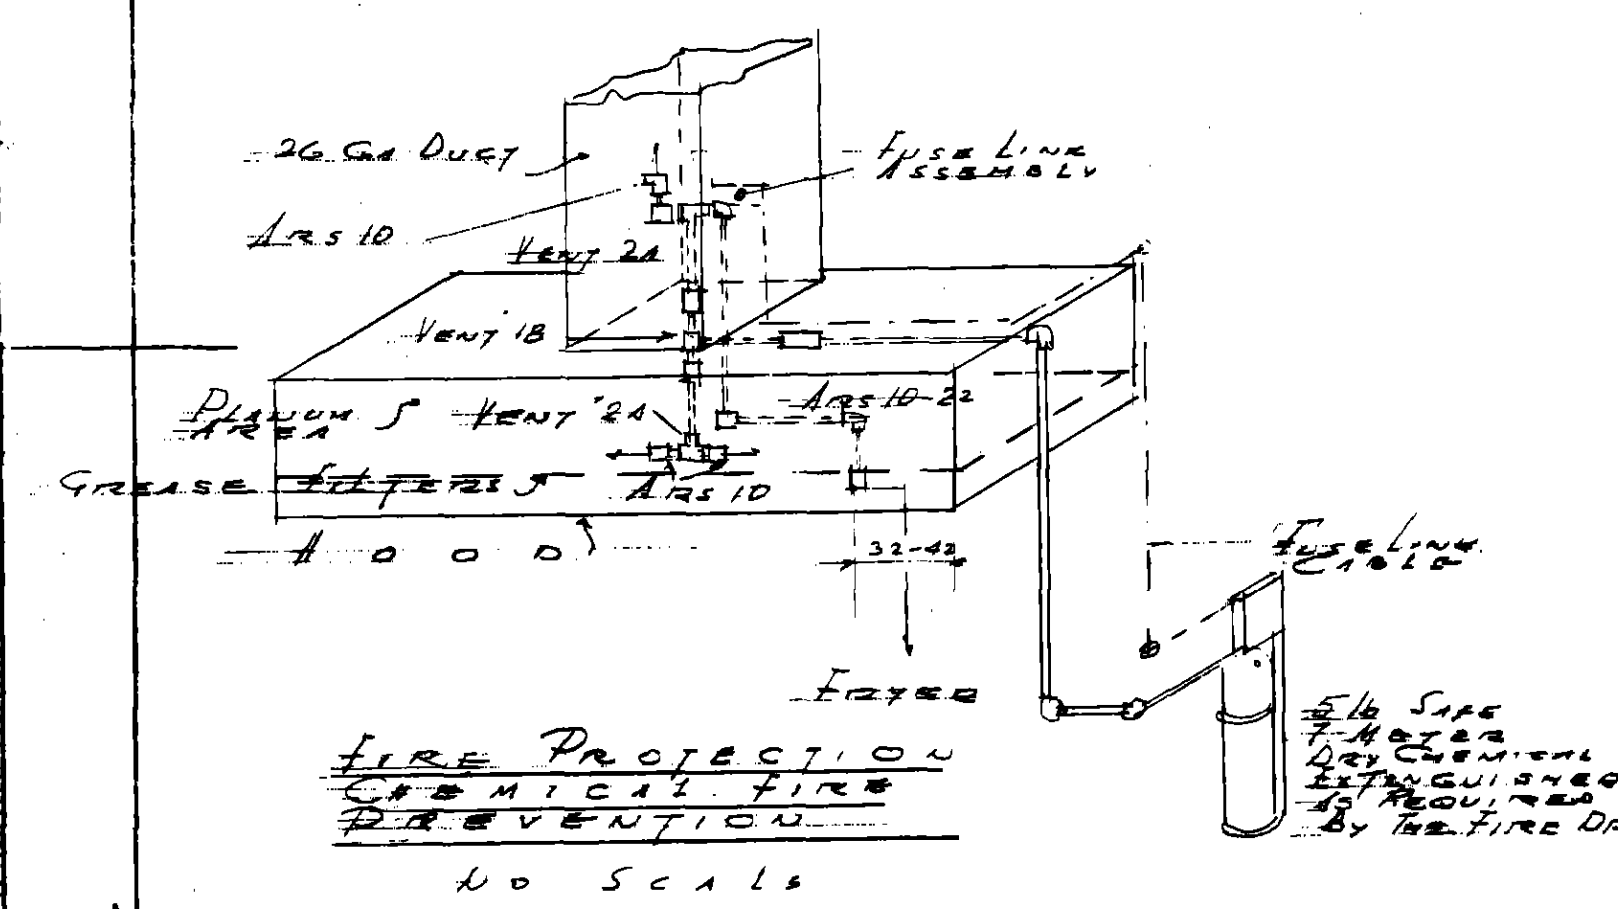 26 GA DUCT
FUSE LINK
ASSEMBLY
ARS 10
VENT 2A
VENT 1B
PLANUM
AREA
VENT 2A
ARS 10-22
GREASE FILTERS
ARS 10
HOOD
32-42
FUSE LINK
CABLE
FRYER
5 lb SAFE
T-METER
DRY CHEMICAL
EXTINGUISHER
AS REQUIRED
BY THE FIRE
FIRE PROTECTION
CHEMICAL FIRE
PREVENTION
NO SCALE